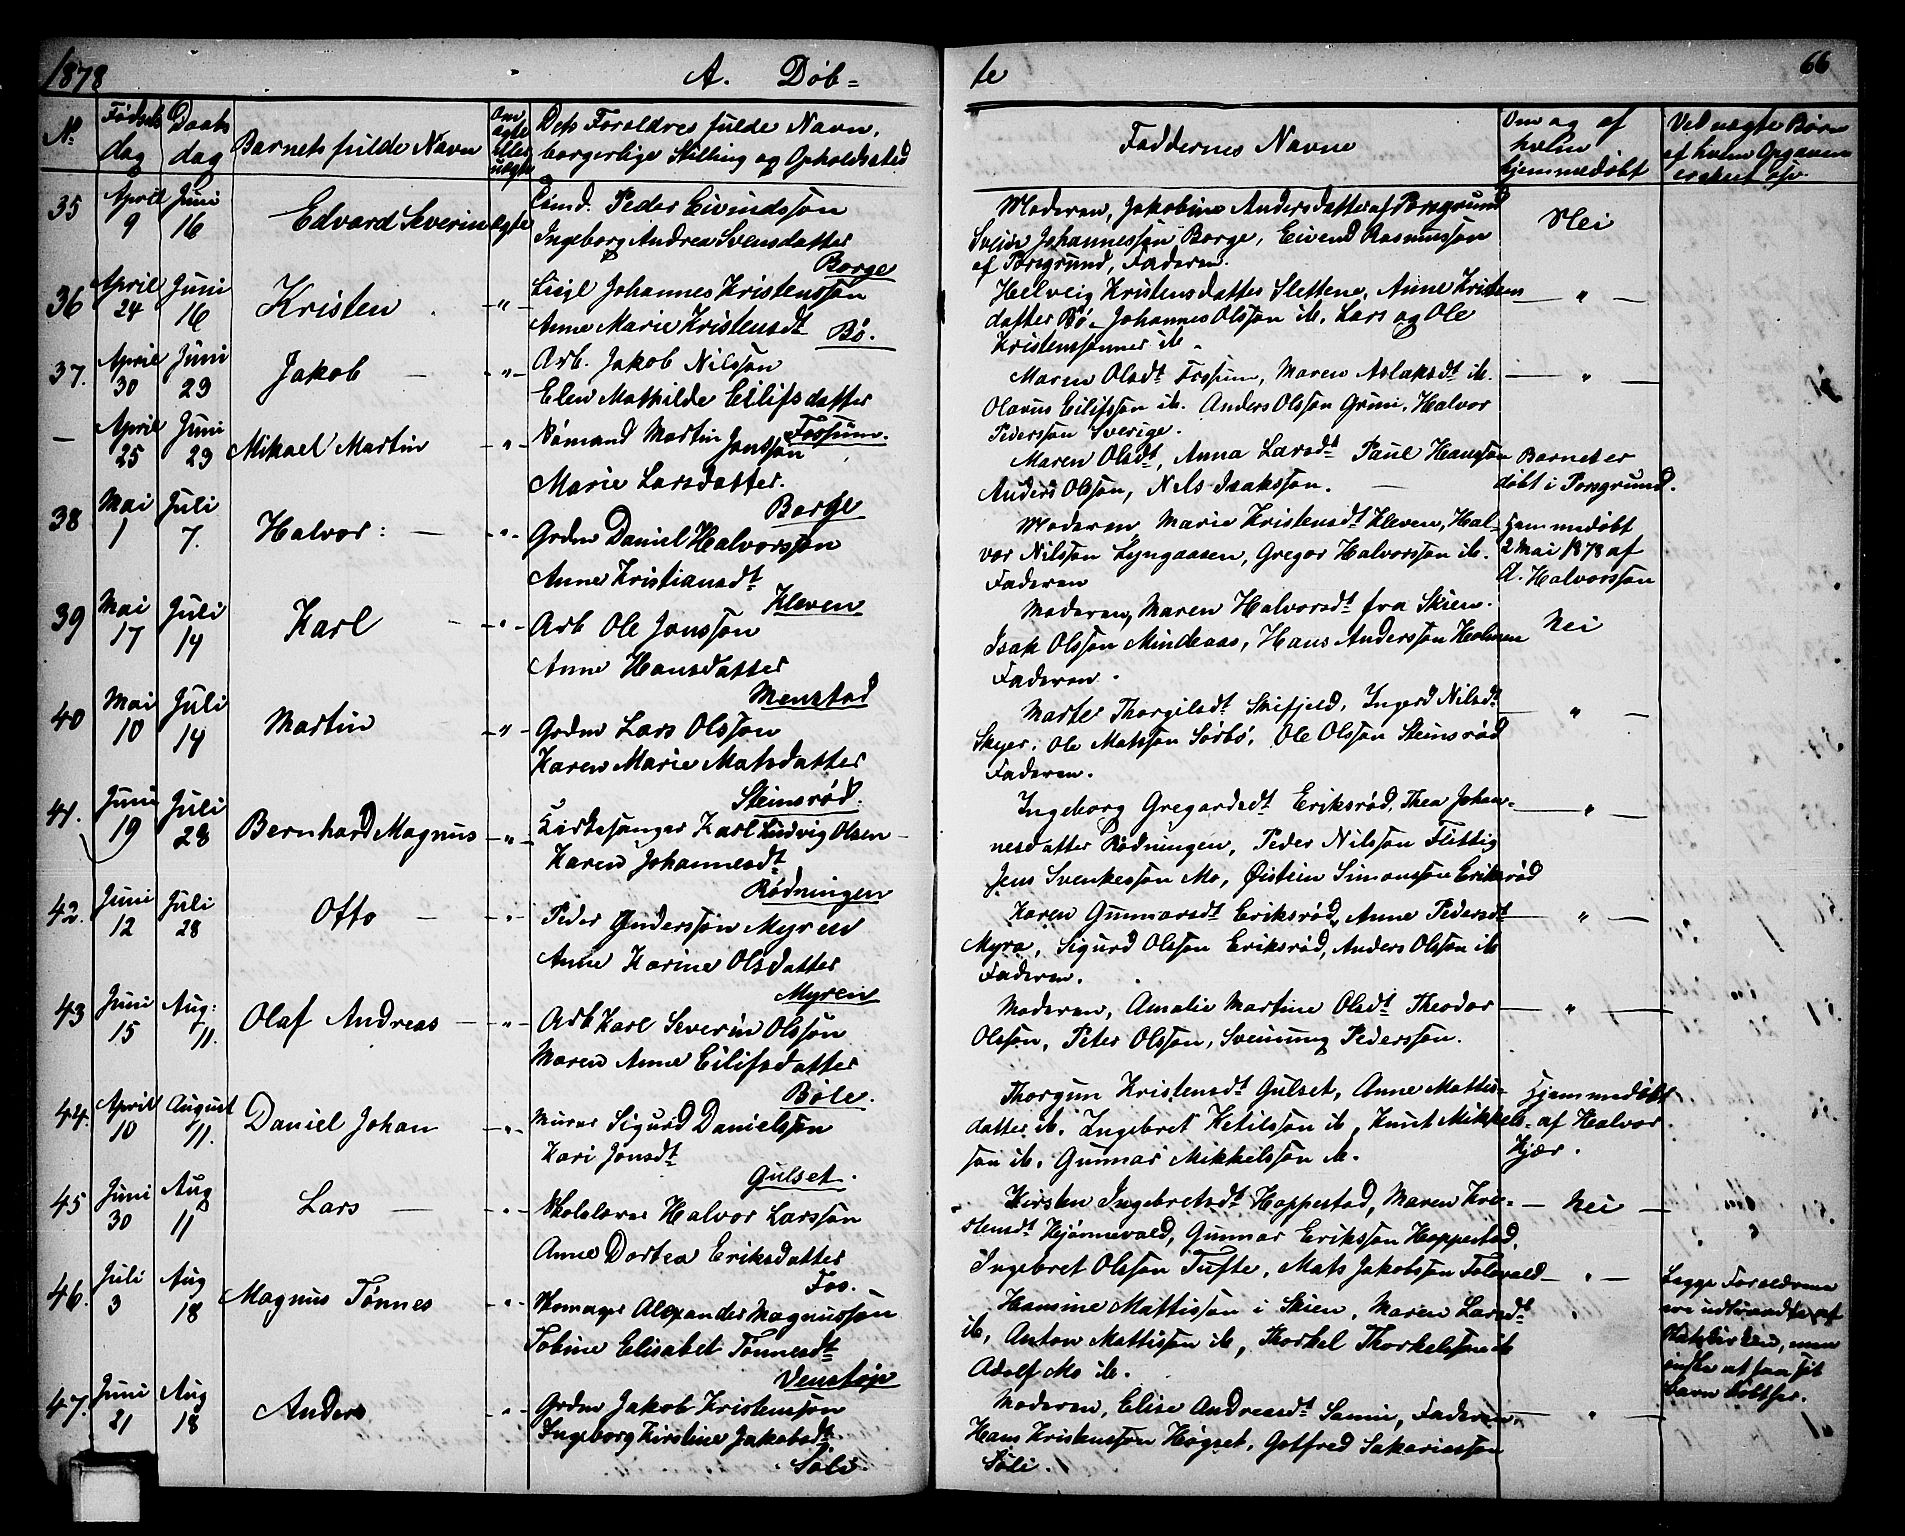 1878 A. Døb- te 66
No Fødsels dag Daabs dag Barnets fulde Navn Om ægte eller uægte Dets Forældres fulde Navn, borgerlige Stilling og Opholdssted Faddernes Navne Om og af hvem hjemmedøbt Ved uægte Børn af hvem Opgaven
35 April 9 Juni 16 Edvard Severin ægte Peder Eivindsson
Ingeborg Andrea Svensdatter
Borge
Moderen, Jakobine Andersdatter af Porsgrund
Johannesson Borge, Eivend Rasmusson
af Porsgrund, Faderen.
Nei
36 April 24 Juni 16 Kristen -"- Johannes Kristensson
Anne Marie Kristensdt Bø.
Helveig Kristensdatter Slettene, Anne Kristens
datter Bø, Johannes Olsson ib. Lars og Ole
Kristenssønner ib.
- " -
37. April 30 Juni 23 Jakob - -"- Arb. Jakob Nilsson
Elen Mathilde Eilifsdatter
Fossum.
Maren Olsdt Fossum, Maren Aslaksdt ib.
Olavus Eilifsson ib. Anders Olsson Grini, Halvor
Pedersson Sverige.
- " -
- April 25 Juni 23 Mikael Martin -"- Sømand Martin Jonsson
Marie Larsdatter.
Borge
Maren Olsdt, Anna Larsdt Paul Hansson
Anders Olsson, Nels Isaksson. -
Barnet er
døbt i Porsgrund.
38 Mai 1 Juli 7. Halvor: - -"- Grdm Daniel Halvorsson
Anne Kristiansdt
Kleven
Moderen, Marie Kristensdt Kleven, Hal-
vor Nilsson Lyngaasen, Gregor Halvorsson ib.
Faderen
Hjemmedøbt
2 Mai 1878 af
D. Halvorsson
39 Mai 17 Juli 14 Karl - -"- Arb Ole Jonsson
Anne Hansdatter
Menstad
Moderen, Maren Halvorsdt fra Skien.
Isak Olsson Mindeaas, Hans Andersson Holmen
Faderen.
Nei
40 Mai 10 Juli 14 Martin -"- Grdm Lars Olsson
Karen Marie Matsdatter
Steinsrød.
Marte Thorgilsdt Skifjeld, Ingerd Nilsdt
Skyer, Ole Matsson Sørbø, Ole Olsson Steinsrød
Faderen.
- " -
41. Juni 19 Juli 28 Bernhard Magnus -"- Kirkesanger Karl Ludvig Olsen -
Karen Johannesdt
Rødningen
Ingeborg Gregardsdt Eriksrød, Thea Johan-
nesdatter Rødningen, Peder Nilsson Flittig
Jens Svenkesson Mo, Øistein Simonsson Eriksrød
- " -
42. Juni 12 Juli 28 Otto - -"- Peder Gundersson Myren
Anne Karine Olsdatter
Myren
Karen Gunnarsdt Eriksrød, Anne Pedersdt
Myra, Sigurd Olsson Eriksrød, Anders Olsson ib
Faderen.
- " -
43 Juni 15 Aug: 11. Olaf Andreas - -"- Arb Karl Severin Olsson
Maren Anne Eilifsdatter
Bøle.
Moderen, Amalie Martine Olsdt Theodor
Olsson, Peter Olsson, Sveinung Pedersson.
- " -
44. April 10 August 11. Daniel Johan -"- Murer Sigurd Danielsson
Kari Jonsdt
Gulset.
Thorgun Kristensdt Gulset, Anne Mattes-
datter ib. Ingebret Ketilsson ib, Knut Mikkels-
son ib. Gunnar Mikkelsson ib.
Hjemmedøbt
af Halvor
Kjær.
45 Juni 30 Aug 11 Lars - -"- Skolelærer Halvor Larsson
Anne Dortea Eriksdatter
Fos.
Kirsten Ingebretsdt Hoppestad, Maren Kri-
stensdt Kjørnevald, Gunnar Eriksson Hoppestad,
Ingebret Olsson Tufte, Mats Jakobsson
- Nei -
46. Juli 3 Aug 18 Magnus Tønnes -"- Skomager Alexander Magnusson
Tobine Elisabet Tønnesdt
Venstøp
Hansine Mattisson i Skien, Maren Larsdt
ib, Anton Mattisson ib, Thorkel Thorkelsson ib
Adolf Mo ib.
- " -
Begge Forældrene
ere udtraadte af
Statskirken, men
ønske at faa sit
Barn døbt her.
47. Juni 21 Aug 18 Anders -"- Grdm Jakob Kristensson
Ingeborg Kirstine Jakobsdt.
Søli.
Moderen, Elise Andreasdt Sanni, Faderen,
Hans Kristensson Høgset, Gotfred Sakariasson
Søli.
- " -